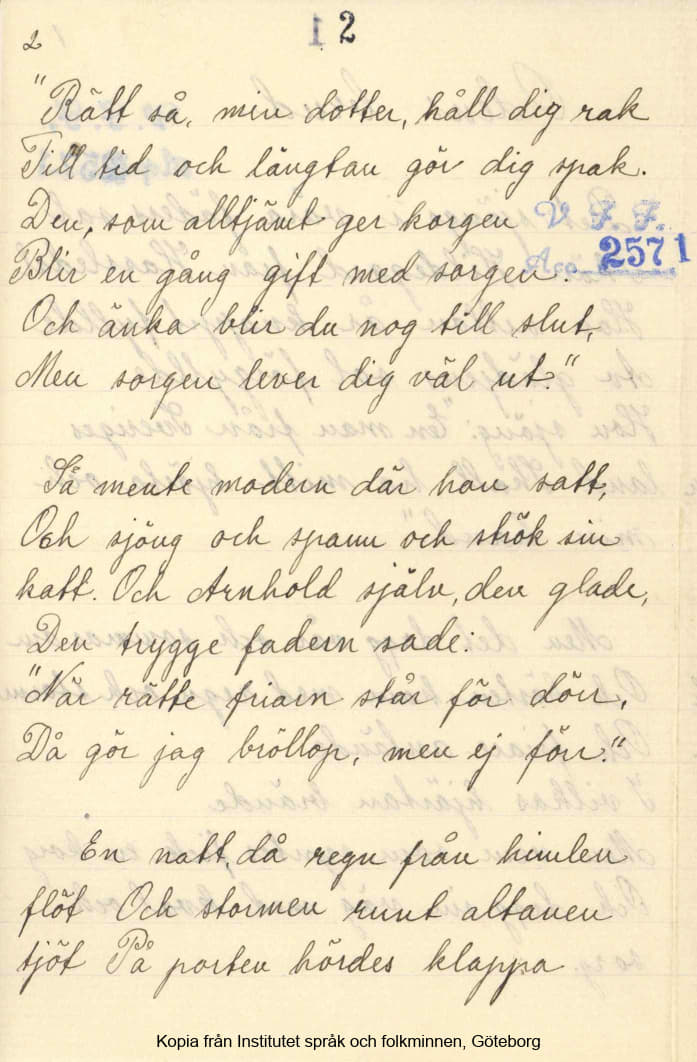 2
1 2
"Rätt så, min dotter, håll dig rak
Till tid och längtan gör dig spak.
Den, som alltjämt ger korgen
V. F. F.
Blir en gång gift med sorgen.
Acc. 2571
Och änka blir du nog till slut,
Men sorgen lever dig väl ut."
Så mente modern där hon satt,
Och sjöng och spann och strök sin
katt. Och Arnhold själv, den glade,
Den trygge fadern sade:
"När rätte friarn står för dörr,
Då gör jag bröllop, men ej förr."
En natt, då regn från himlen
flöt Och stormen runt altanen
tjöt På porten hördes klappa
Kopia från Institutet språk och folkminnen, Göteborg